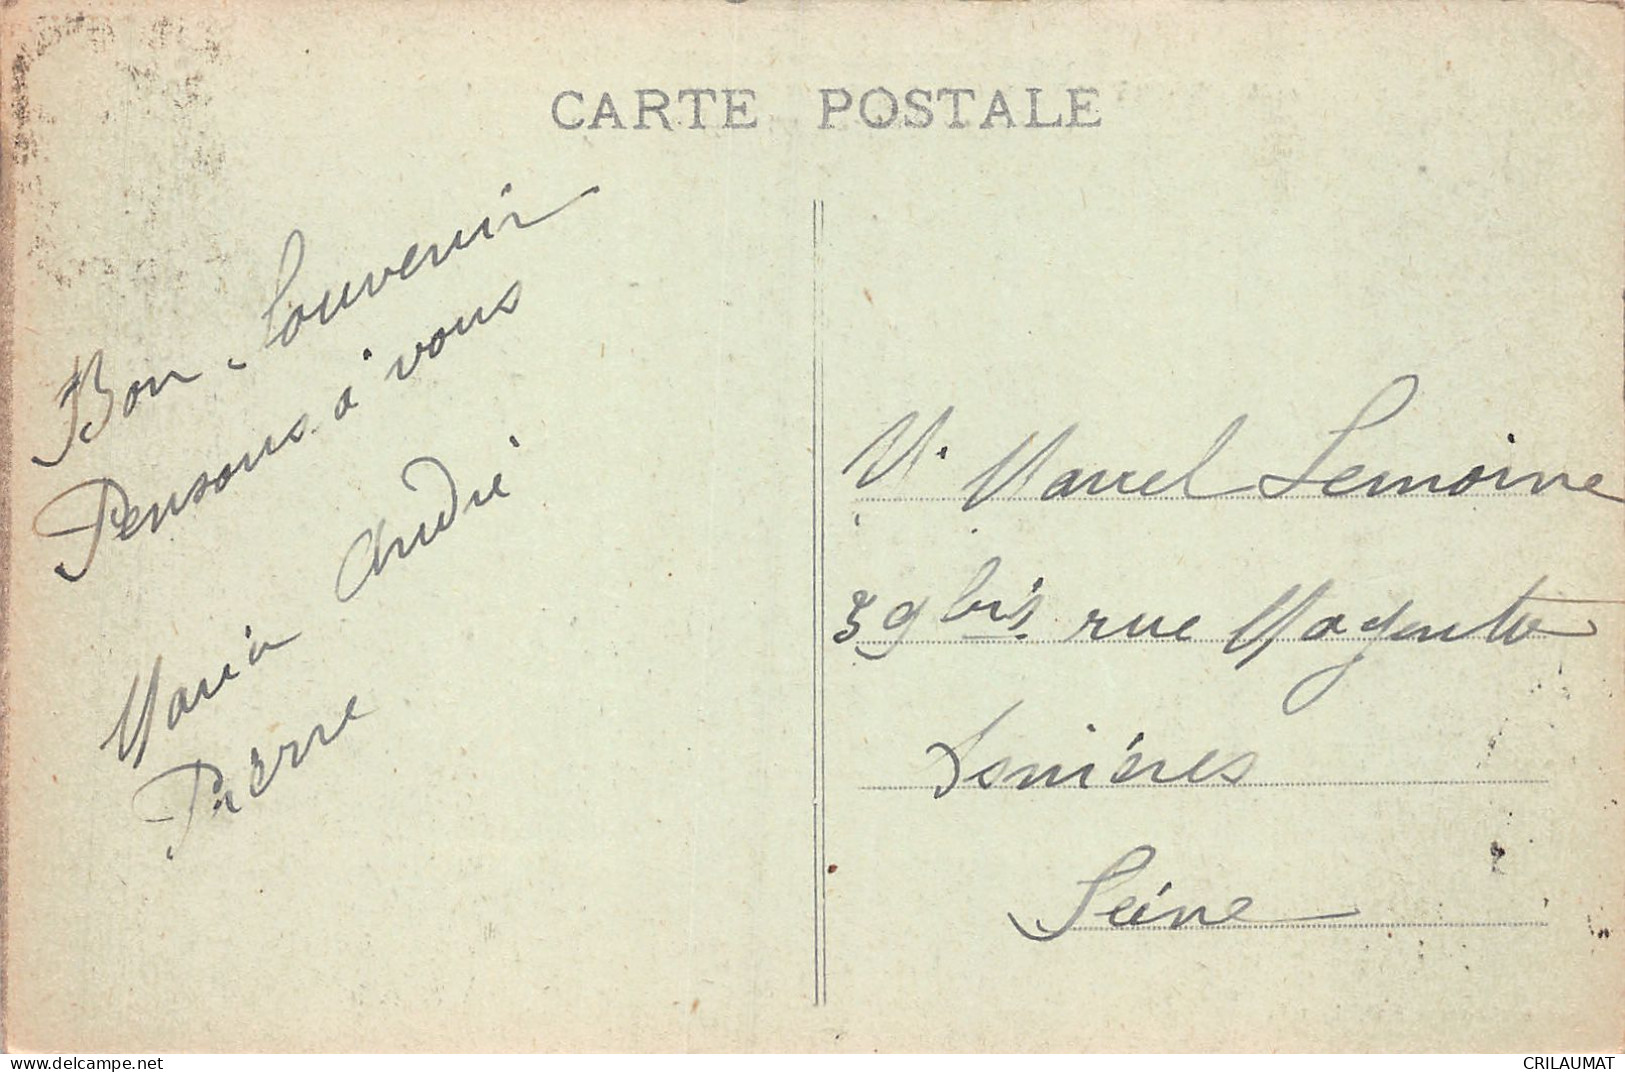 CARTE POSTALE
Bon Souvenir
Pensons à vous
André
Maria
Pierre
M. Marcel Lemoine
39 bis rue Magenta
Asnières
Seine
delcampe.net
CRILAUMAT